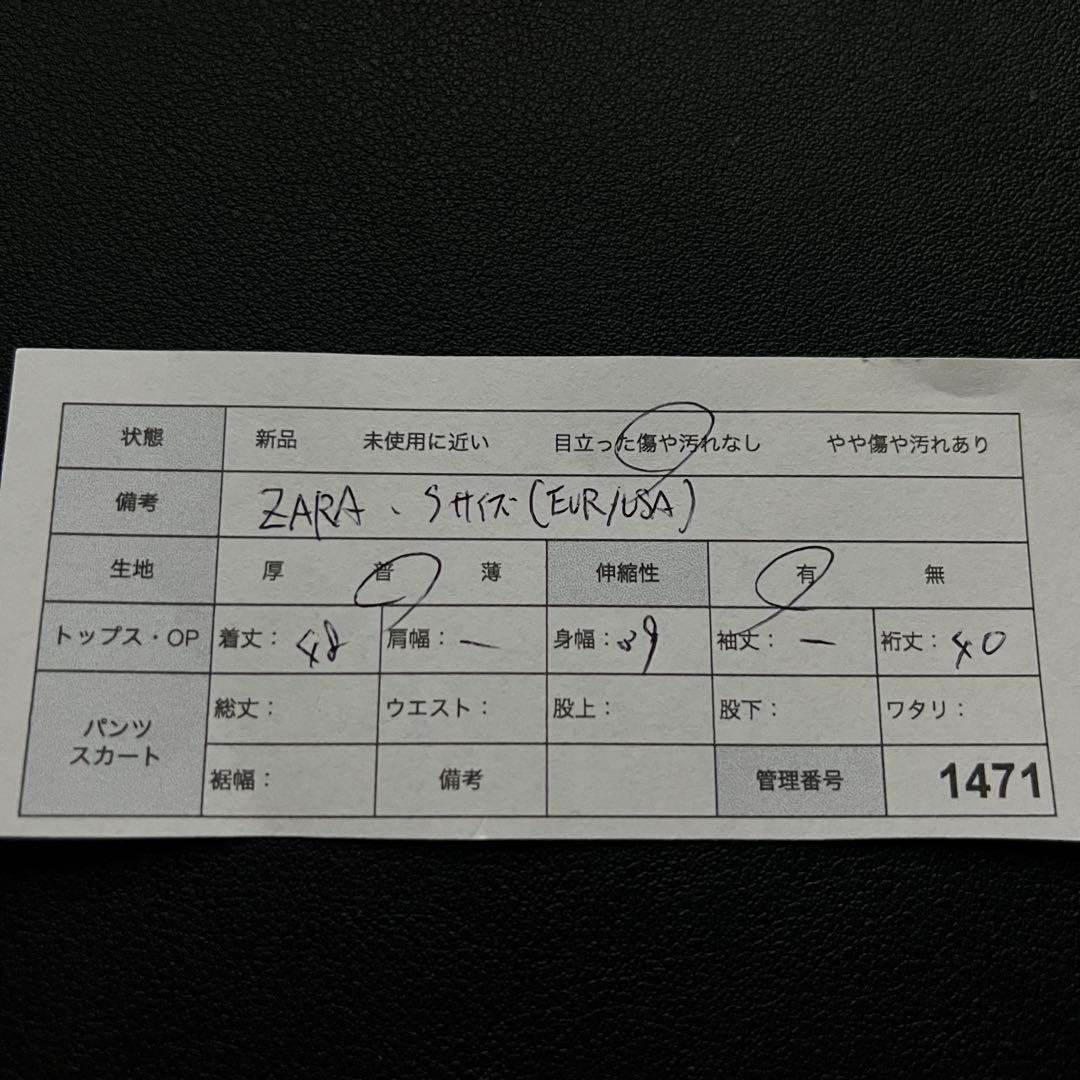 状態 新品 未使用に近い 目立った傷や汚れなし やや傷や汚れあり
備考 ZARA、Sサイズ(EUR/USA)
生地 厚 普 薄 伸縮性 有 無
トップス・OP 着丈: 48 肩幅: ー 身幅: 39 袖丈: ー 裄丈: 40
パンツ スカート 総丈: ウエスト: 股上: 股下: ワタリ:
裾幅: 備考 管理番号 1471